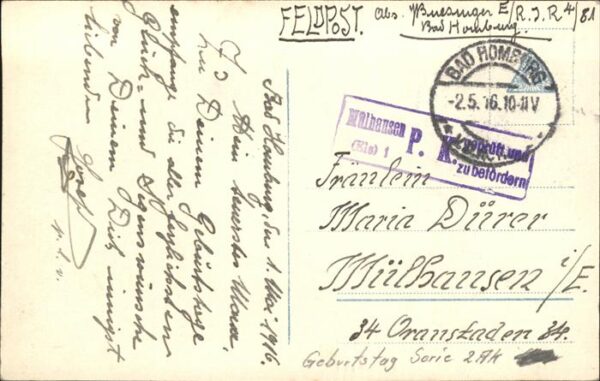 FELDPOST.
Abs. Buesinger E/R.I.R 4/81
Bad Homburg.
BAD HOMBURG
-2.5.16.10-11V
Mülhausen
(Els) 1
P. K.
geprüft und
zu befördern
Fräulein
Maria Dürer
Mülhausen i/E.
34 Oranstaden 34.
Geburtstag Serie 2 Ak
Bad Homburg, den 1. Mai 1916.
Mein teuerstes
Zu Deinem Geburtstage
empfange die allerherzlichsten
Glück- und Segenswünsche
von Deinem Dich innigst
liebenden